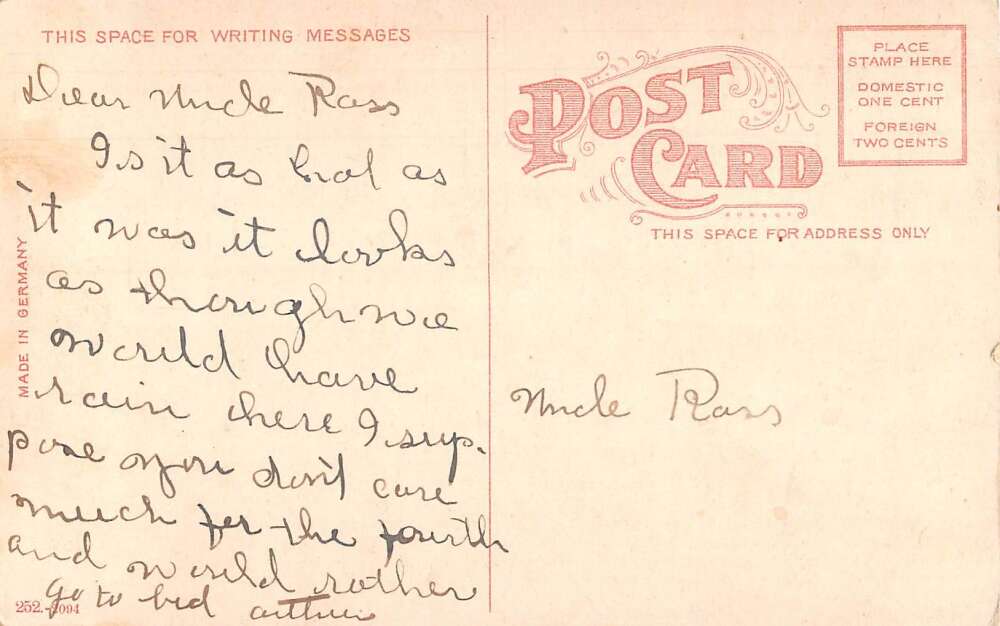 THIS SPACE FOR WRITING MESSAGES
Dear Uncle Rass
Is it as hot as
it was it looks
as though we
would have
rain here I sup-
pose you don't care
much for the fourth
and would rather
go to bed arthur
MADE IN GERMANY
252.-2094
POST
CARD
THIS SPACE FOR ADDRESS ONLY
PLACE
STAMP HERE
DOMESTIC
ONE CENT
FOREIGN
TWO CENTS
Uncle Rass